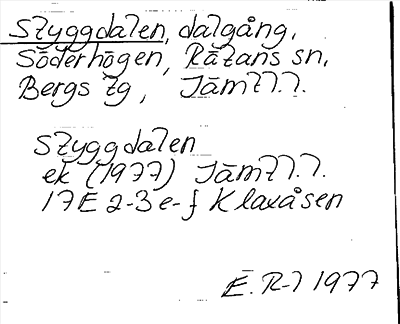 Styggdalen, dalgång,
Söderhögen, Rätans sn,
Bergs tg, Jämtl.
Styggdalen
ek (1977) Jämtl.
17E 2-3 e-f Klaxåsen
E. R-l 1977